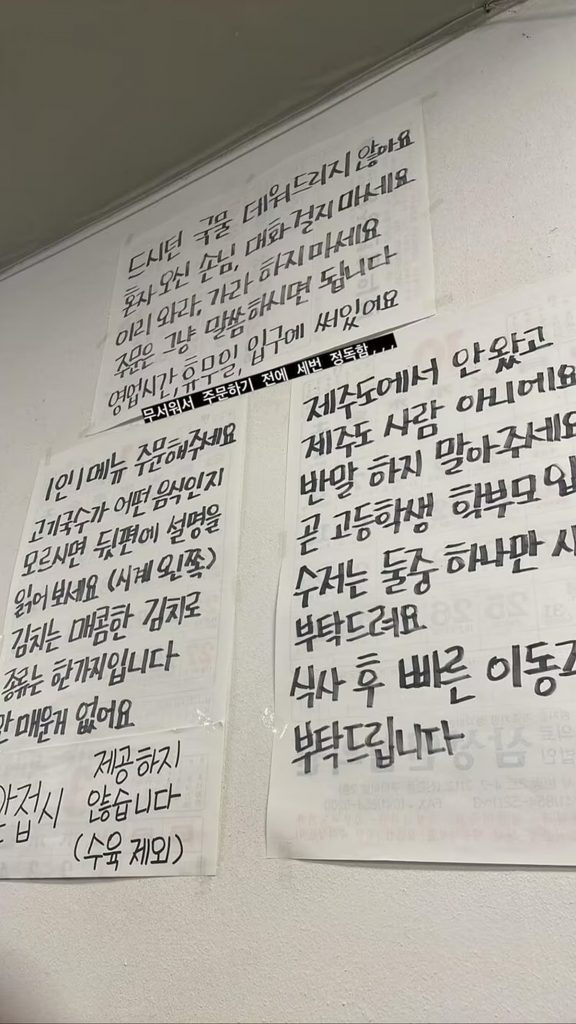 드시던 국물 데워드리지 않아요
혼자 오신 손님, 대화 걸지 마세요
이리 와라, 가라 하지마세요
주문은 그냥 말씀하시면 됩니다
영업시간, 휴무일, 입구에 써있어요
무서워서 주문하기 전에 세번 정독함,,,
1인 1메뉴 주문해주세요
고기국수가 어떤 음식인지
모르시면 뒷편에 설명을
읽어 보세요 (시계 왼쪽)
김치는 매콤한 김치로
종류는 한가지입니다
안 매운거 없어요
접시 제공하지
않습니다
(수육 제외)
제주도에서 안 왔고
제주도 사람 아니에요
반말 하지 말아주세요
곧 고등학생 학부모
수저는 둘중 하나만
부탁드려요
식사 후 빠른 이동
부탁드립니다